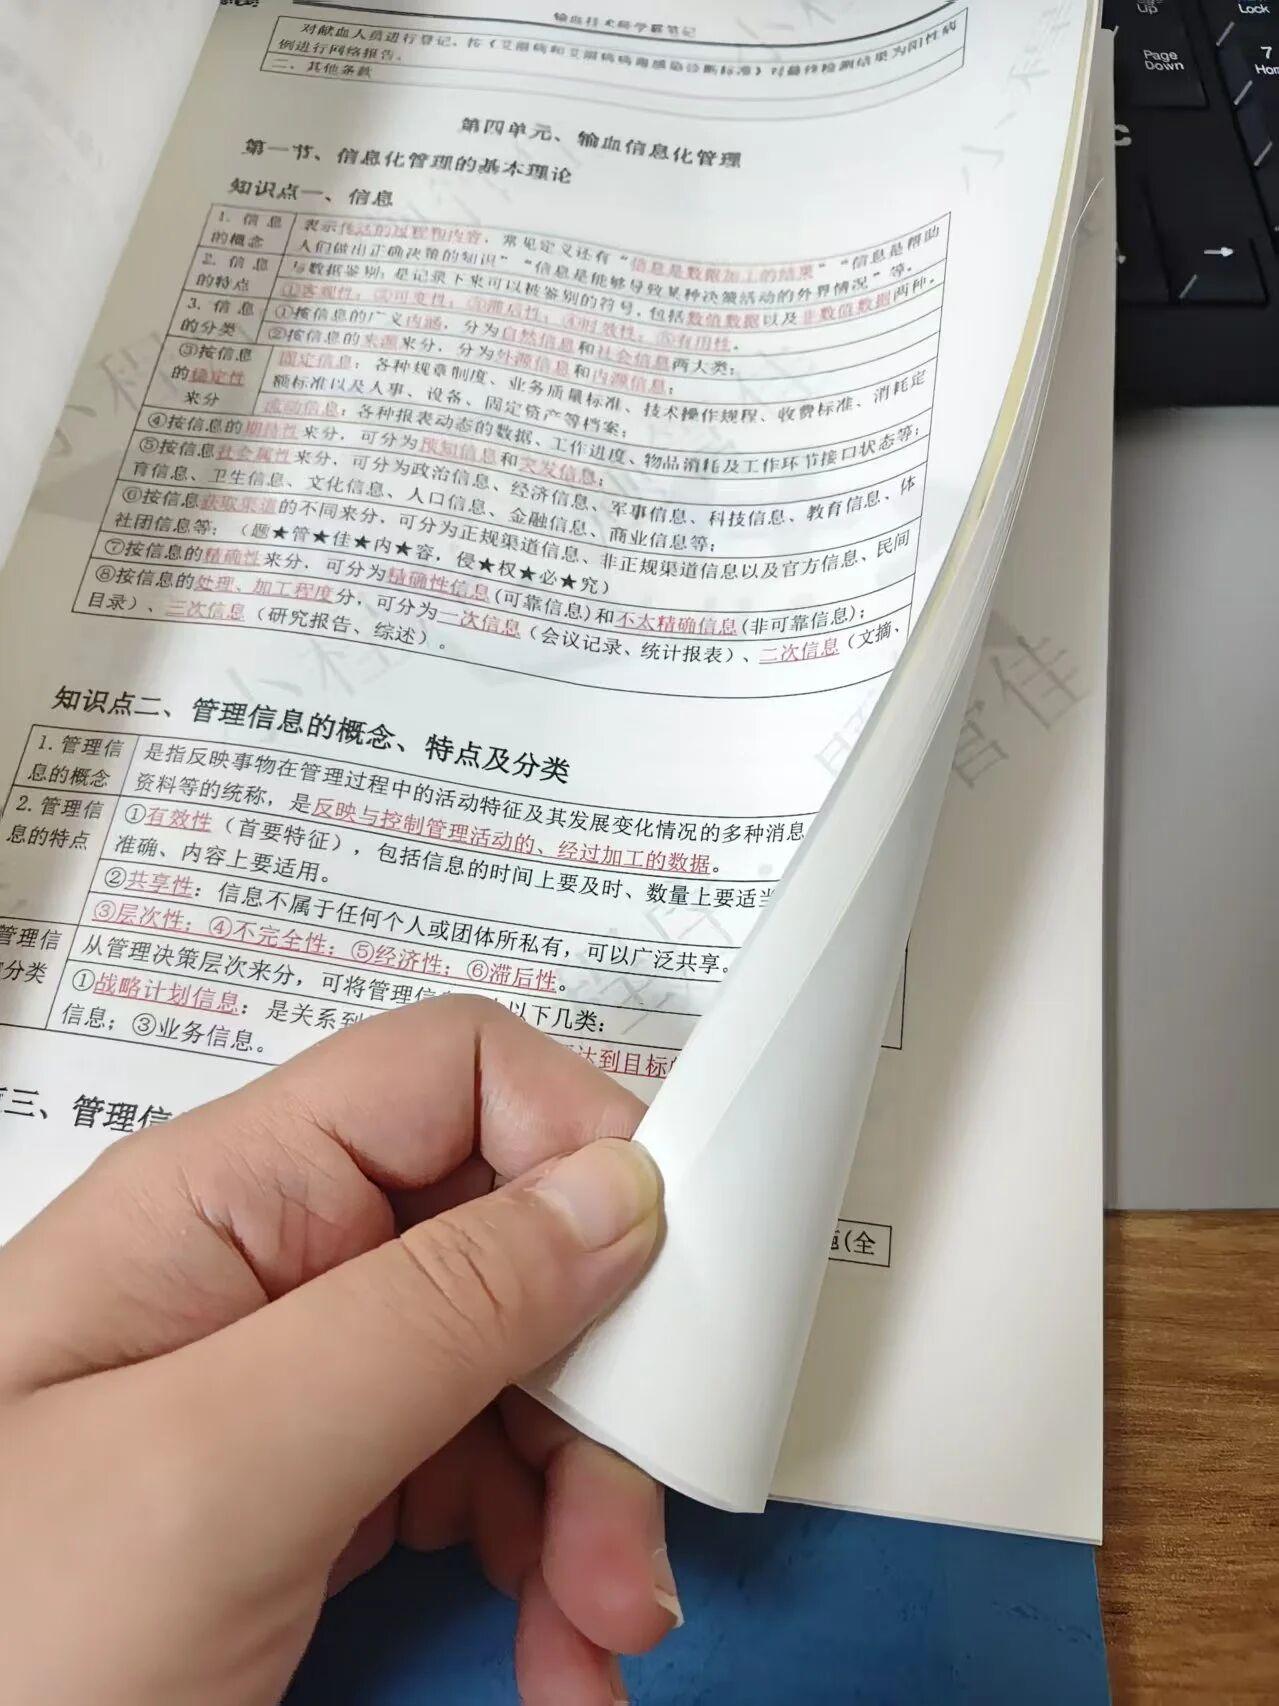 输血技术师学霸笔记
对献血人员进行登记，按《艾滋病和艾滋病病毒感染诊断标准》对最终检测结果为阳性病
例进行网络报告。
二、其他条款
第四单元、输血信息化管理
第一节、信息化管理的基本理论
知识点一、信息
1. 信息
的概念
表示传达的过程和内容，常见定义还有“信息是数据加工的结果”“信息是帮助
人们做出正确决策的知识”“信息是能够导致某种决策活动的外界情况”等。
与数据鉴别：是记录下来可以被鉴别的符号，包括数值数据以及非数值数据两种。
2. 信息
的特点
①客观性；②可变性；③滞后性；④时效性；⑤有用性。
3. 信息
的分类
①按信息的广义内涵，分为自然信息和社会信息两大类；
②按信息的来源来分，分为外源信息和内源信息；
③按信息
的稳定性
来分
固定信息：各种规章制度、业务质量标准、技术操作规程、收费标准、消耗定
额标准以及人事、设备、固定资产等档案；
流动信息：各种报表动态的数据、工作进度、物品消耗及工作环节接口状态等；
④按信息的期待性来分，可分为预知信息和突发信息；
⑤按信息社会属性来分，可分为政治信息、经济信息、军事信息、科技信息、教育信息、体
育信息、卫生信息、文化信息、人口信息、金融信息、商业信息等；
⑥按信息获取渠道的不同来分，可分为正规渠道信息、非正规渠道信息以及官方信息、民间
社团信息等；（题★管★佳★内★容，侵★权★必★究）
⑦按信息的精确性来分，可分为精确性信息(可靠信息)和不太精确信息(非可靠信息)；
⑧按信息的处理、加工程度分，可分为一次信息（会议记录、统计报表）、二次信息（文摘、
目录）、三次信息（研究报告、综述）。
知识点二、管理信息的概念、特点及分类
1. 管理信
息的概念
是指反映事物在管理过程中的活动特征及其发展变化情况的多种消息
资料等的统称，是反映与控制管理活动的、经过加工的数据。
2. 管理信
息的特点
①有效性（首要特征），包括信息的时间上要及时、数量上要适当
准确、内容上要适用。
②共享性：信息不属于任何个人或团体所私有，可以广泛共享。
③层次性；④不完全性；⑤经济性；⑥滞后性。
管理信
分类
从管理决策层次来分，可将管理信 以下几类：
①战略计划信息：是关系到 达到目标的
信息；③业务信息。
三、管理信
施(全